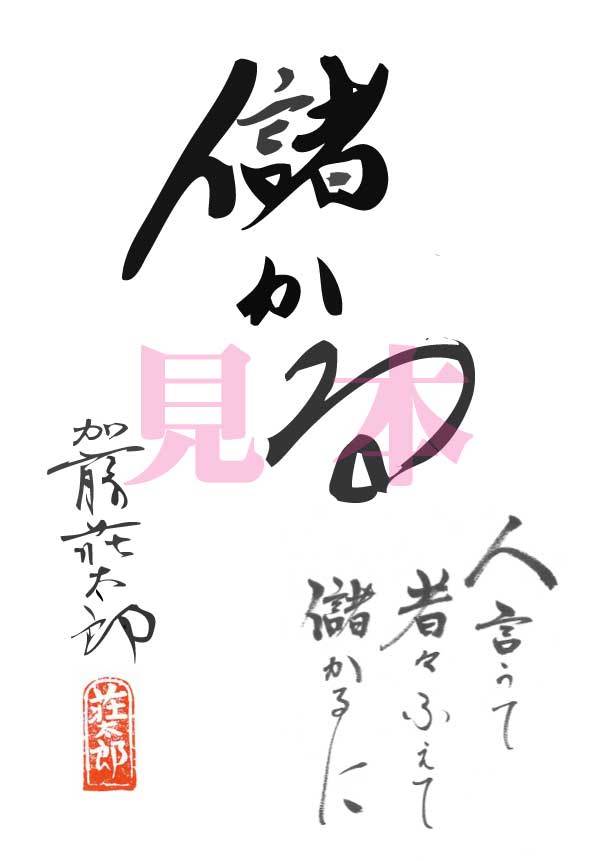 儲かる
見本
人言うて
者々ふえて
儲かるに
加藤荘太郎
荘太郎